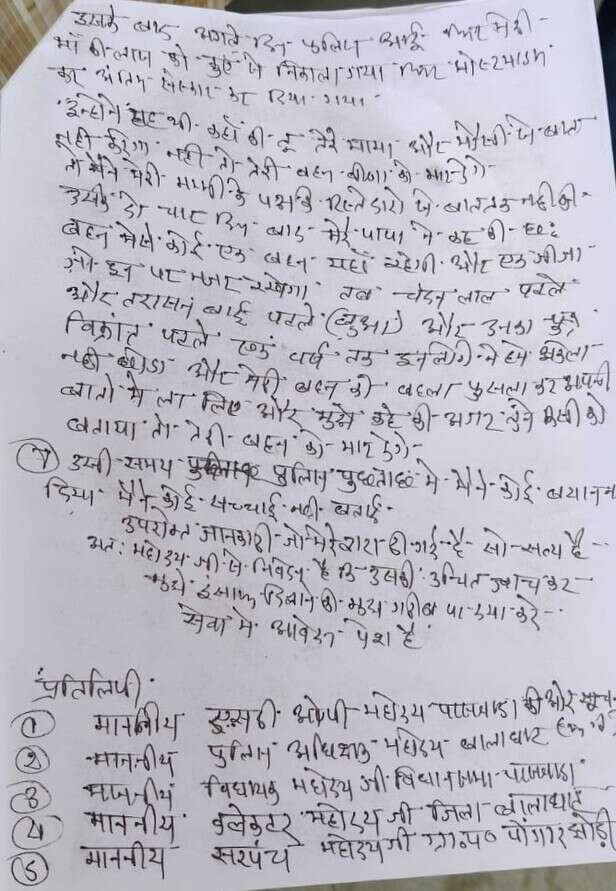 उसके बाद अगले दिन पुलिस आई फिर मेरी
माँ की लाश को कुएं से निकाला गया फिर पोस्टमार्डम
कर अंतिम संस्कार कर दिया गया
इन्होंने यह भी कहाँ की तू तेरे मामा और मौसी से बात
नही करेगा नही तो तेरी बहन को मार देंगे
तो मैंने मेरी मम्मी के पक्ष के रिस्तेदारो से बाततक नही की
उसके दो चार दिन बाद मेरे पापा ने कहा की
बहन मेसे कोई एक बहन यहाँ रहेगी और एक जीजा
जो इन पर नजर रखेगा तब चेतन लाल परले
और तरासन बाई परले (बुआ) और उनका पुत्र
विक्रांत परले एक वर्ष तक इन लोगो ने हमे अकेला
नही छोडा और मेरी बहन को बहला फुसला कर अपनी
बातो मे ला लिए और मुझे कहे की अगर तुने किसी को
बताया तो तेरी बहन को मार देंगे
(7) उसी समय पुलिस पुछताछ मे मैने कोई बयान न
दिया मैने कोई सच्चाई नही बताई
उपरोक्त जानकारी जो मेरे द्वारा दी गई है सो सत्य है
अतः महोदय जी से निवेदन है कि उसकी उचित जाच कर
मुझे इंसाफ दिलाने की मुझ गरीब पर दया करे
सेवा मे आवेदन पेश है
प्रतिलिपी
(1) माननीय एसडी ओपी महोदय परसवाडा की ओर
(2) माननीय पुलिस अधिक्षक महोदय बालाघाट
(3) माननीय विधायक महोदय जी विधानसभा परसवाडा
(4) माननीय कलेक्टर महोदय जी जिला बालाघाट
(5) माननीय सरपंच महोदय जी ग्रा०प० पोंगार झोड़ी